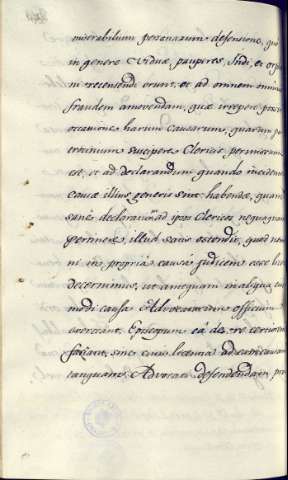 miserabilium personarum defensione, quo
in genere Viduæ, pauperes, Indi, et orpha
ni recensendi erunt, et ad omnem omnino
fraudem amovendam, quæ irrepere posset
occasione harum causarum, quarum pa
trocinium suscipere Clericis permissum
est, et ad declarandum quando incidens
causæ illius generis sint habendæ, quam
sane declarationem ad ipsos Clericos nequaquam
pertinere, illud satis ostendit, quod nemi
ni in propria causa judicem esse licet
decernimus, ut antequam in aliqua ejus
modi causa Advocatorum officium
exerceant, Episcopum ea de re certiorem
faciant, sine cujus licentia ad eam causam
tanquam Advocati defendendam, pro